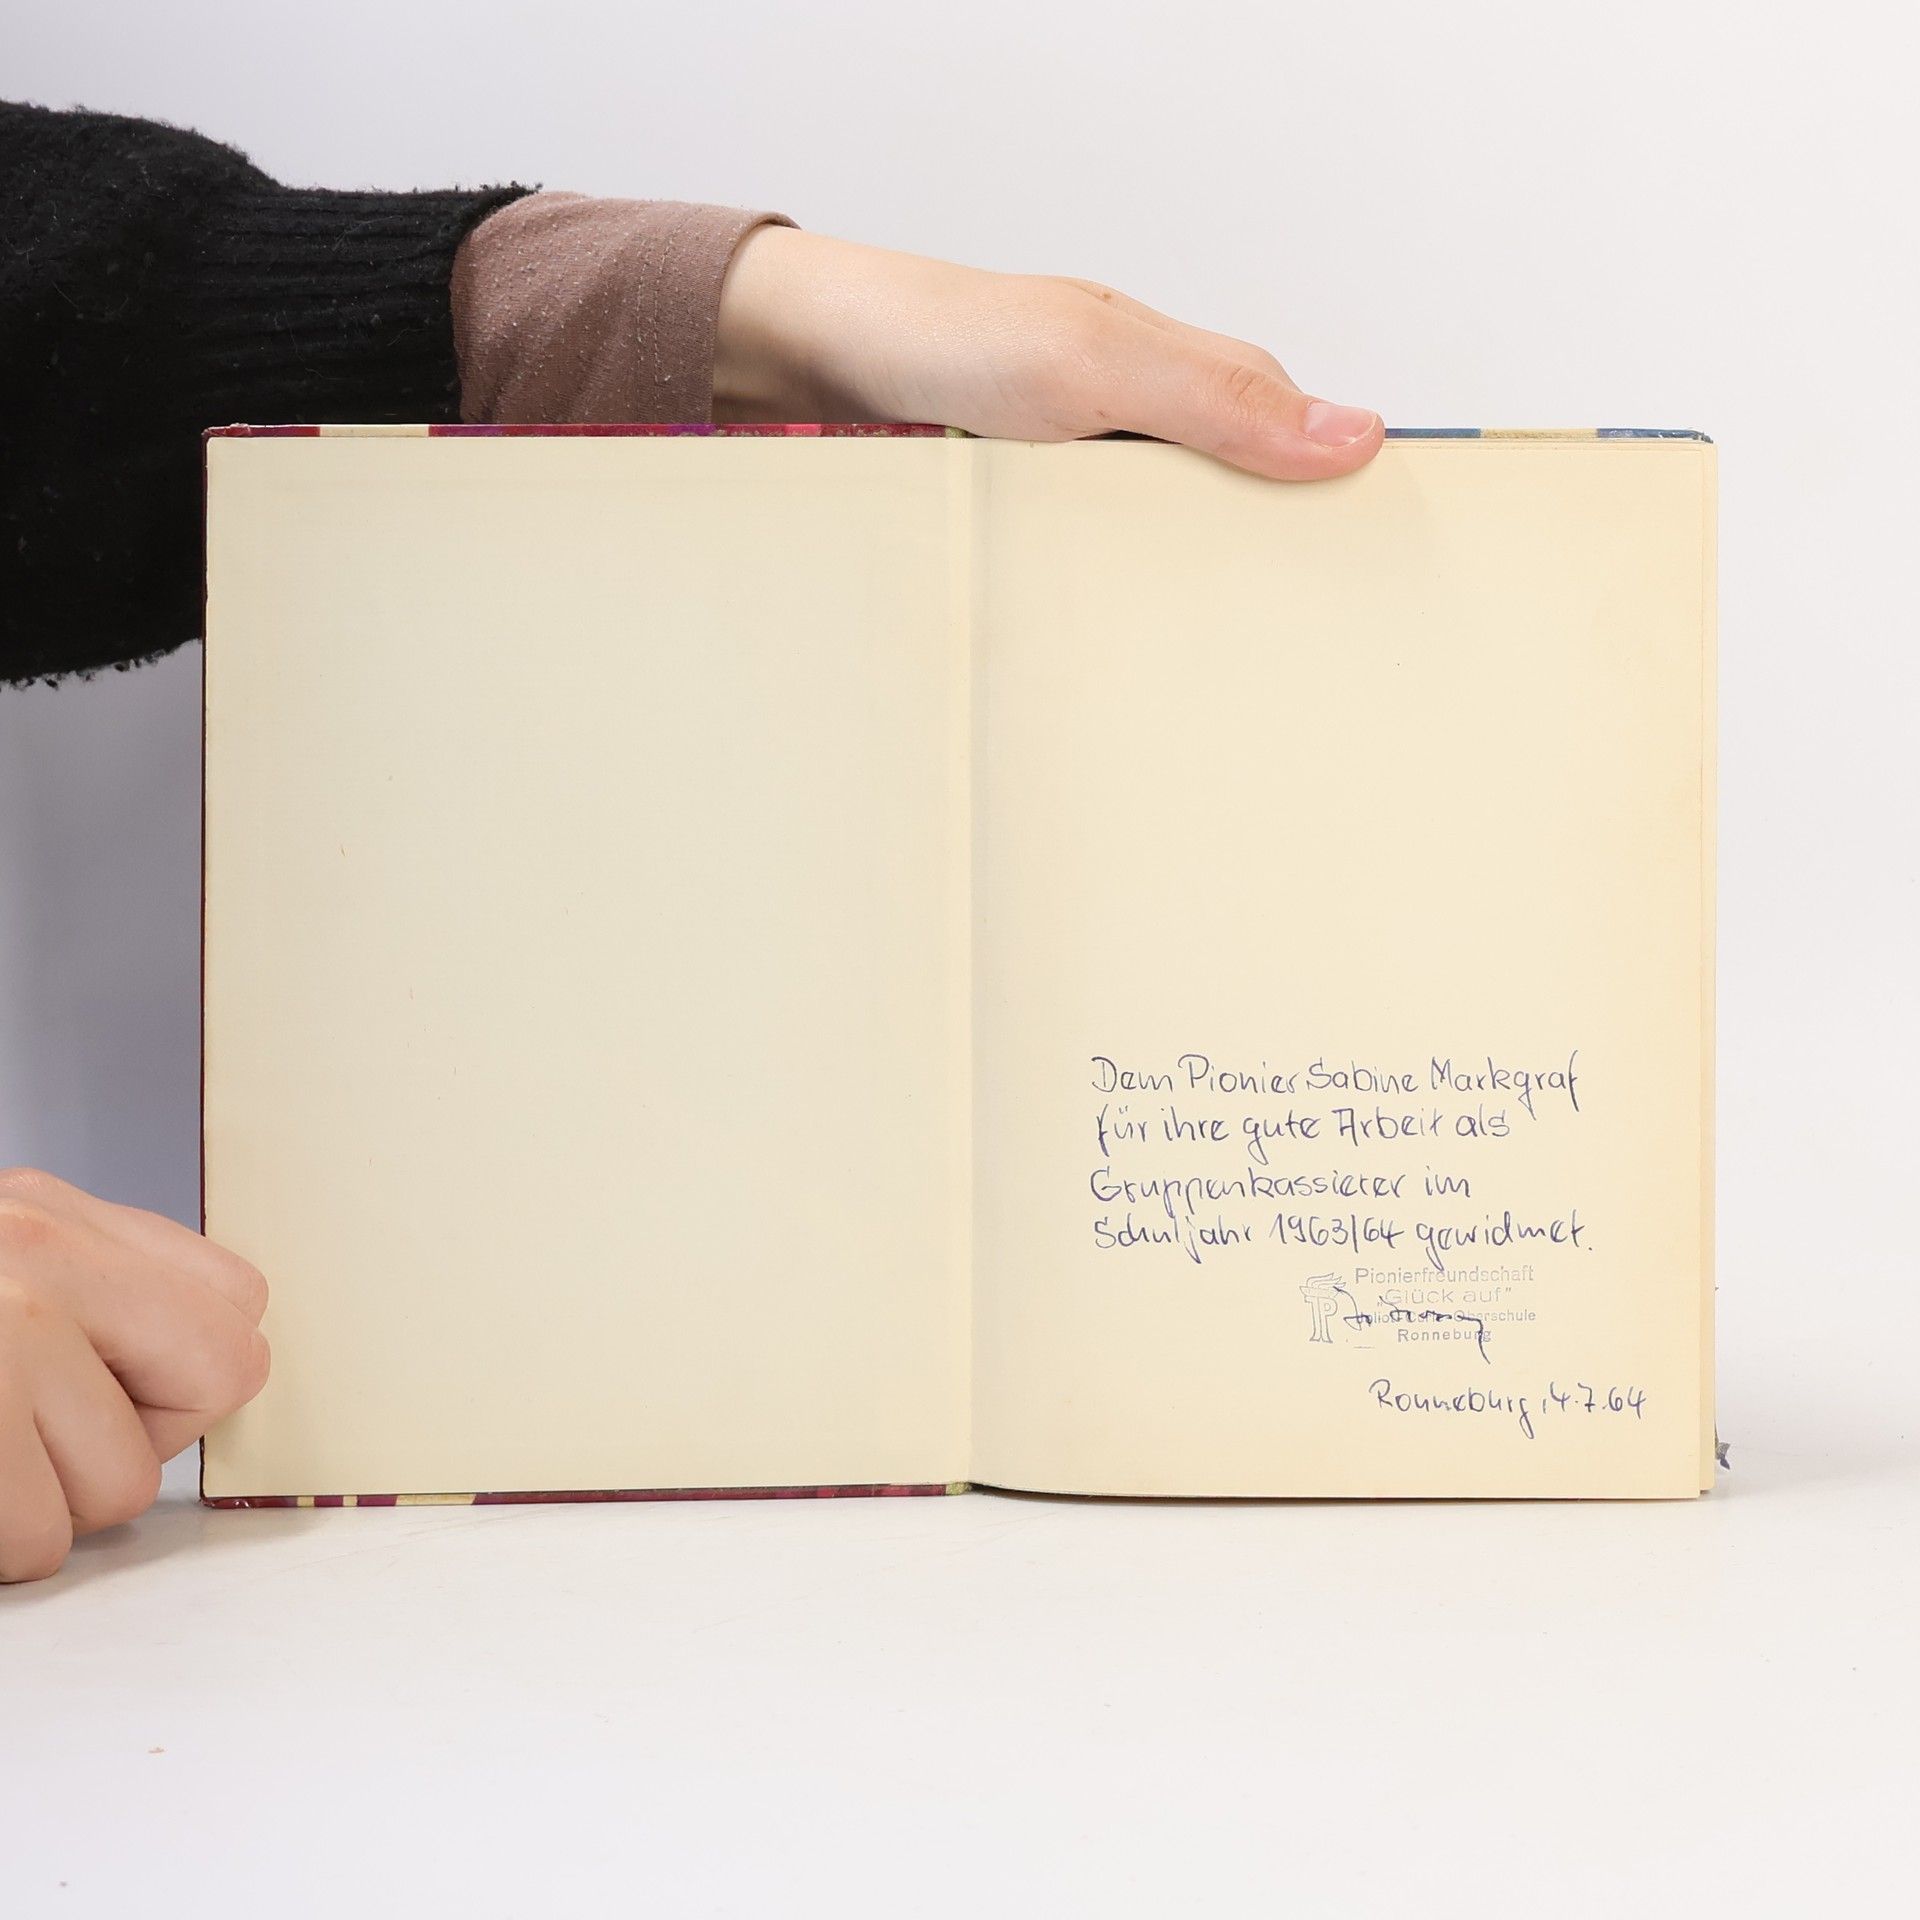 Dem Pionier Sabine Markgraf
für ihre gute Arbeit als
Gruppenkassierer im
Schuljahr 1963/64 gewidmet.
Pionierfreundschaft
"Glück auf"
Joliot-Curie-Oberschule
Ronneburg
Ronneburg, 4.7.64